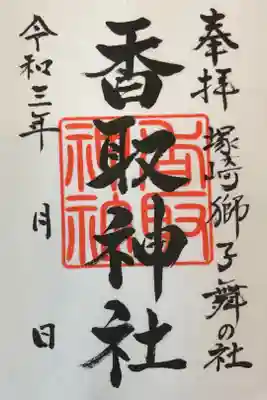 奉拝
塚崎獅子舞の社
香取神社
香取神社
令和三年 月 日